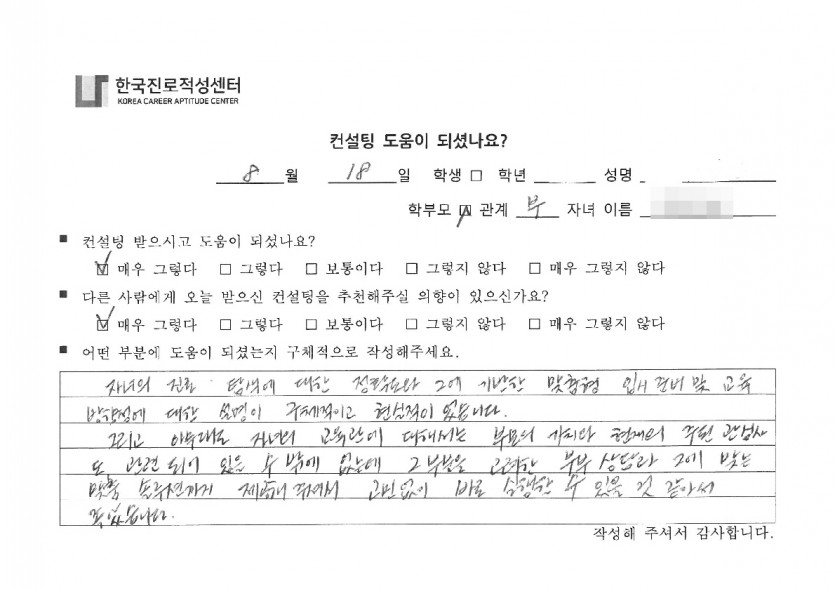 한국진로적성센터
KOREA CAREER APTITUDE CENTER
컨설팅 도움이 되셨나요?
8 월 18 일 학생 □ 학년 성명
학부모 ☑ 관계 부 자녀 이름
■ 컨설팅 받으시고 도움이 되셨나요?
☑ 매우 그렇다 □ 그렇다 □ 보통이다 □ 그렇지 않다 □ 매우 그렇지 않다
■ 다른 사람에게 오늘 받으신 컨설팅을 추천해주실 의향이 있으신가요?
☑ 매우 그렇다 □ 그렇다 □ 보통이다 □ 그렇지 않다 □ 매우 그렇지 않다
■ 어떤 부분에 도움이 되셨는지 구체적으로 작성해주세요.
자녀의 진로 탐색에 대한 정확도와 그에 기반한 맞춤형 입시 준비 및 교육
방향성에 대한 설명이 구체적이고 현실적이었습니다.
그리고 아무래도 자녀의 교육관에 대해서는 부모의 가치와 현재의 주된 관심사
도 관련 되어 있을 수 밖에 없는데 그 부분을 고려한 부부 상담과 그에 맞는
맞춤 솔루션까지 제공해 주셔서 고민없이 바로 실행할 수 있을 것 같아서
좋았습니다.
작성해 주셔서 감사합니다.